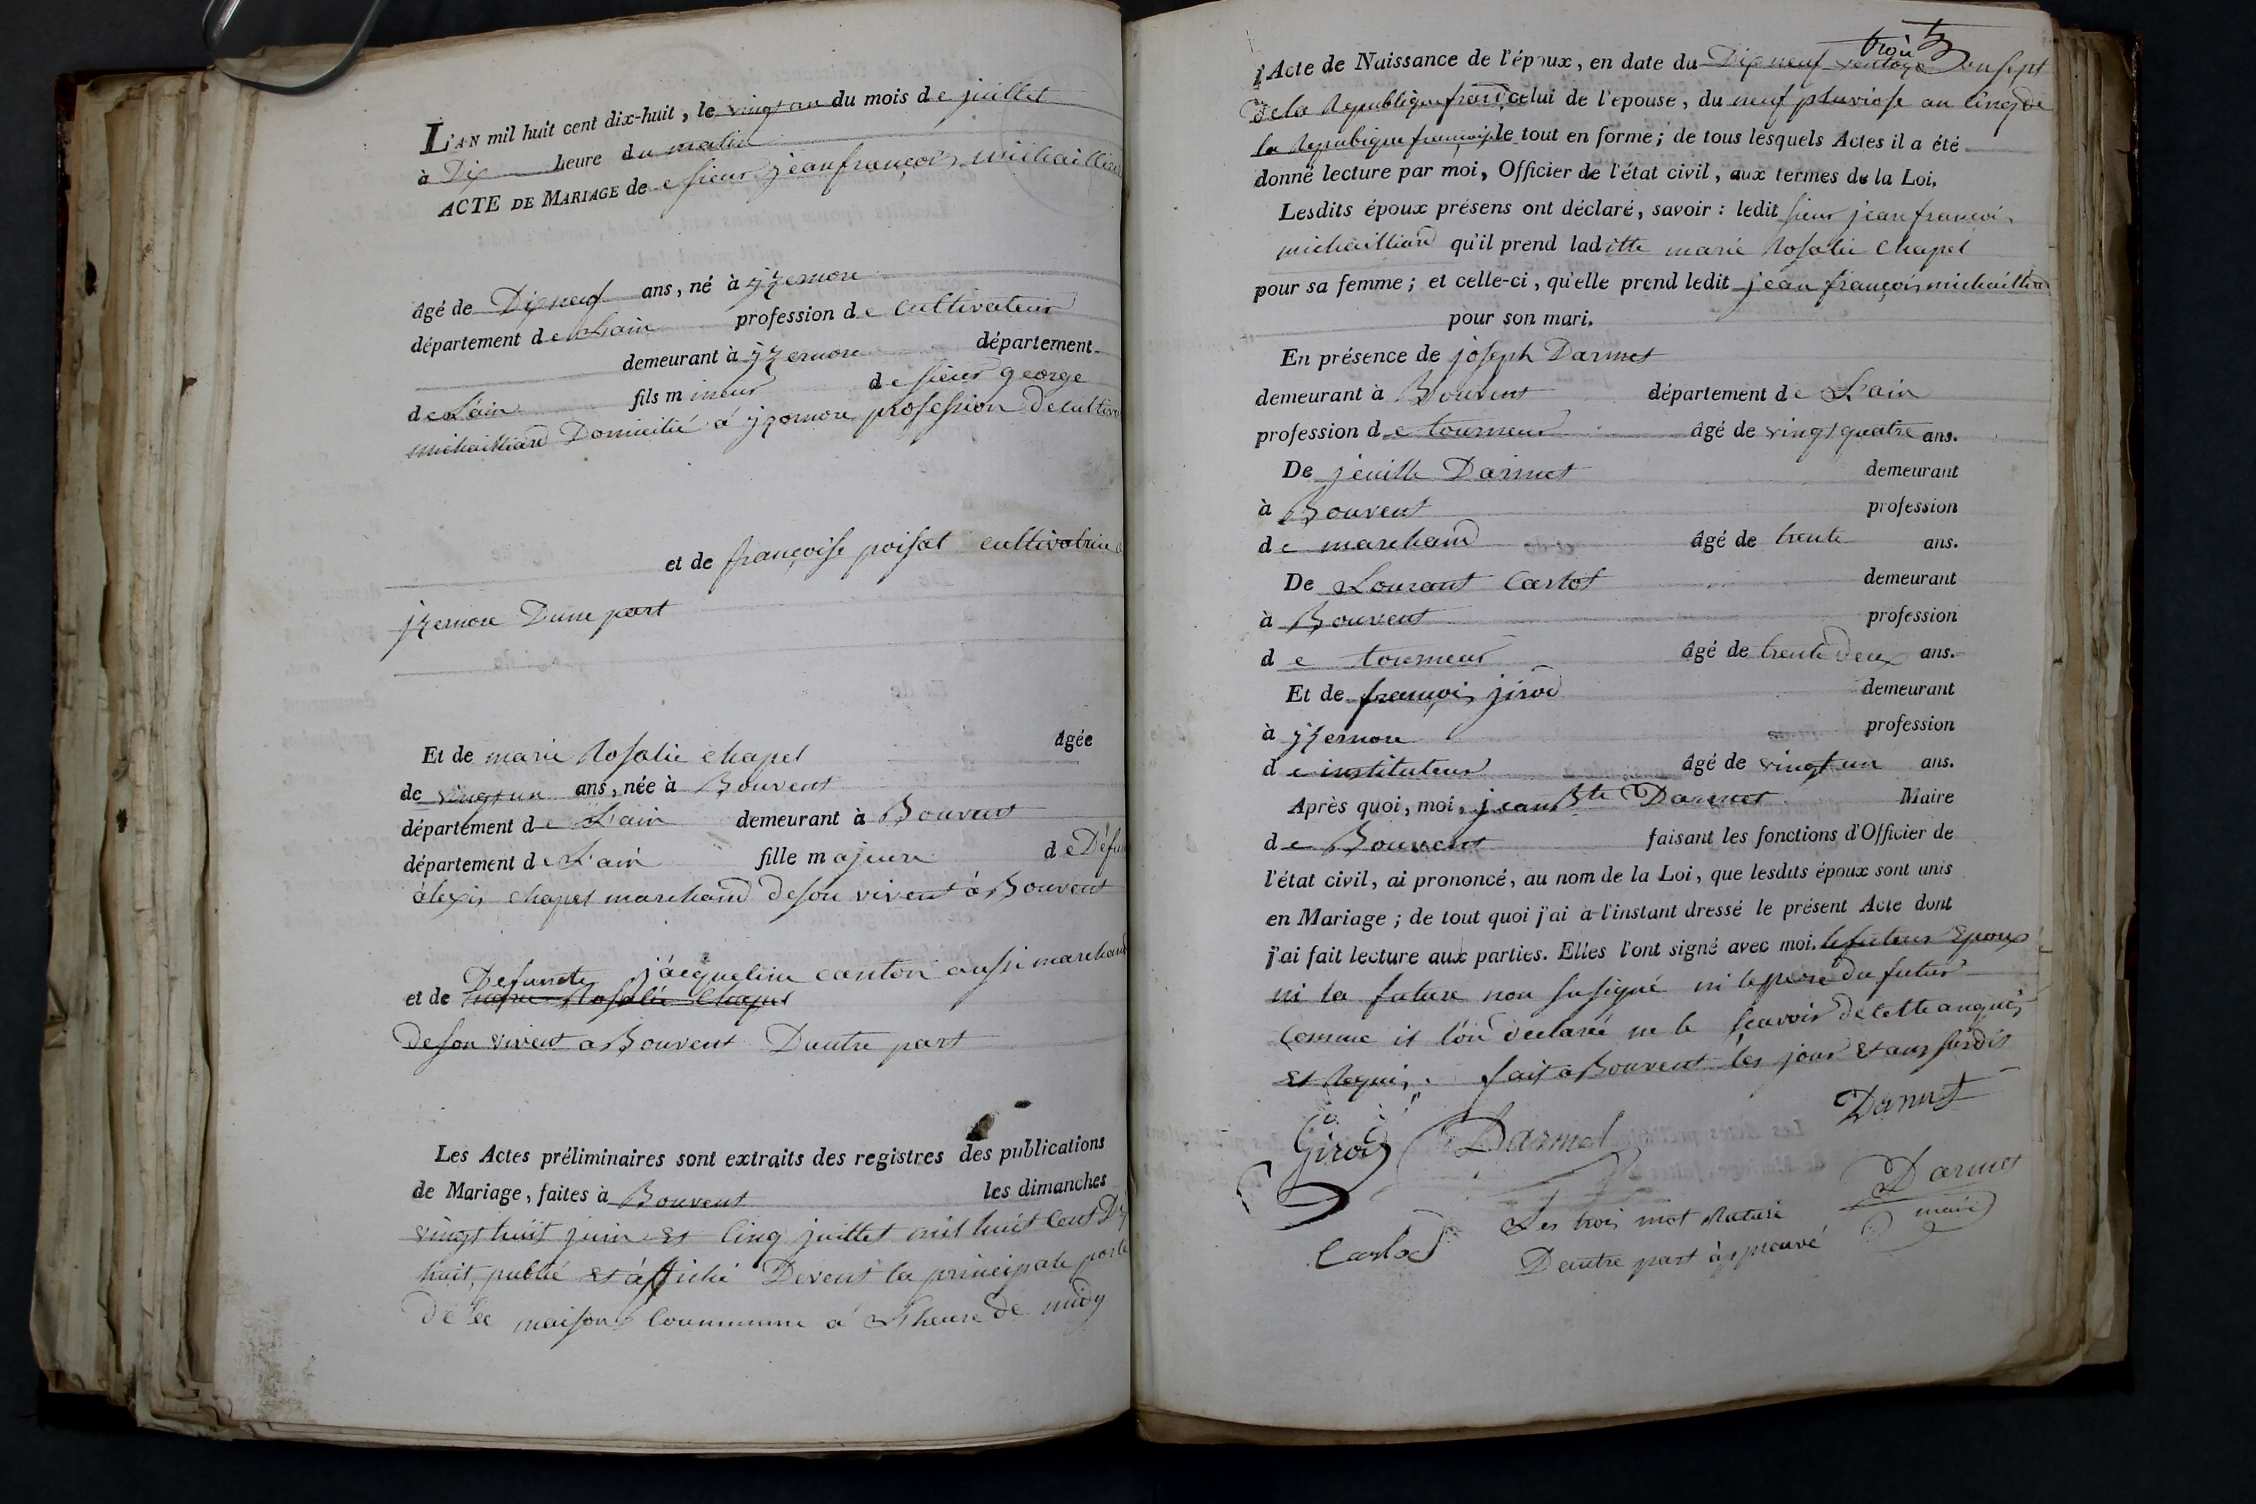 L'AN mil huit cent dix-huit, le vingt un du mois de juillet
à Dix heure du matin
ACTE DE MARIAGE de sieur jean françois michaillian
âgé de Dix neuf ans, né à jzernore
département de Lain profession de Cultivateur
demeurant à jzernore département
de Lain fils mineur de sieur george
michaillian Domicilié à jzernore profession de cultiva
et de françoise poisat cultivatrice a
jzernore Dune part
Et de marie Rosalie chapel âgée
de vingt un ans, née à Bouvent
département de L'ain demeurant à Bouvent
département de L'ain fille majeure de Défun
àlexis chapel marchand de son vivent à Bouvent
Defunete jacqueline canton aussi marchand
et de marie Rosalie Chapel
de son vivent a Bouvent Dautre part
Les Actes préliminaires sont extraits des registres des publications
de Mariage, faites à Bouvent les dimanches
vingt huit juin et Cinq juillet mil huit Cent Dix
huit, publié et àffiché Devent la principale porte
de la maison Commune à L'heure de midy
l'Acte de Naissance de l'époux, en date du Dix neuf ventose trois an sept
de la Republique fran celui de l'epouse, du neuf pluviose an Cinq de
la Repubique françoise le tout en forme; de tous lesquels Actes il a été
donné lecture par moi, Officier de l'état civil, aux termes de la Loi.
Lesdits époux présens ont déclaré, savoir: ledit sieur jean françois
michaillian qu'il prend laditte marie Rosalie Chapel
pour sa femme; et celle-ci, qu'elle prend ledit jean françois michaillian
pour son mari.
En présence de joseph Darmet
demeurant à Bouvent département de L'ain
profession de tourneur âgé de vingt quatre ans.
De jenille Darmet demeurant
à Bouvent profession
de marchand âgé de trente ans.
De Lourant Carlot demeurant
à Bouvent profession
de tourneur âgé de trente deux ans.
Et de françois jirod demeurant
à jzernore profession
de instituteur âgé de vingt un ans.
Après quoi, moi, jean Bte Darmet Maire
de Bouvent faisant les fonctions d'Officier de
l'état civil, ai prononcé, au nom de la Loi, que lesdits époux sont unis
en Mariage; de tout quoi j'ai à l'instant dressé le présent Acte dont
j'ai fait lecture aux parties. Elles l'ont signé avec moi. le futeur Epoux
ni la future non susigné ni le pere du futur
Comme il l'on declaré ne le sçavoir de cette
et Requis. fait à Bouvent les jour et ans susdis
Girod Darmet Darmet
Darmet
maire
Carlot Les trois mot Raturé
Dautre part àpprouvé